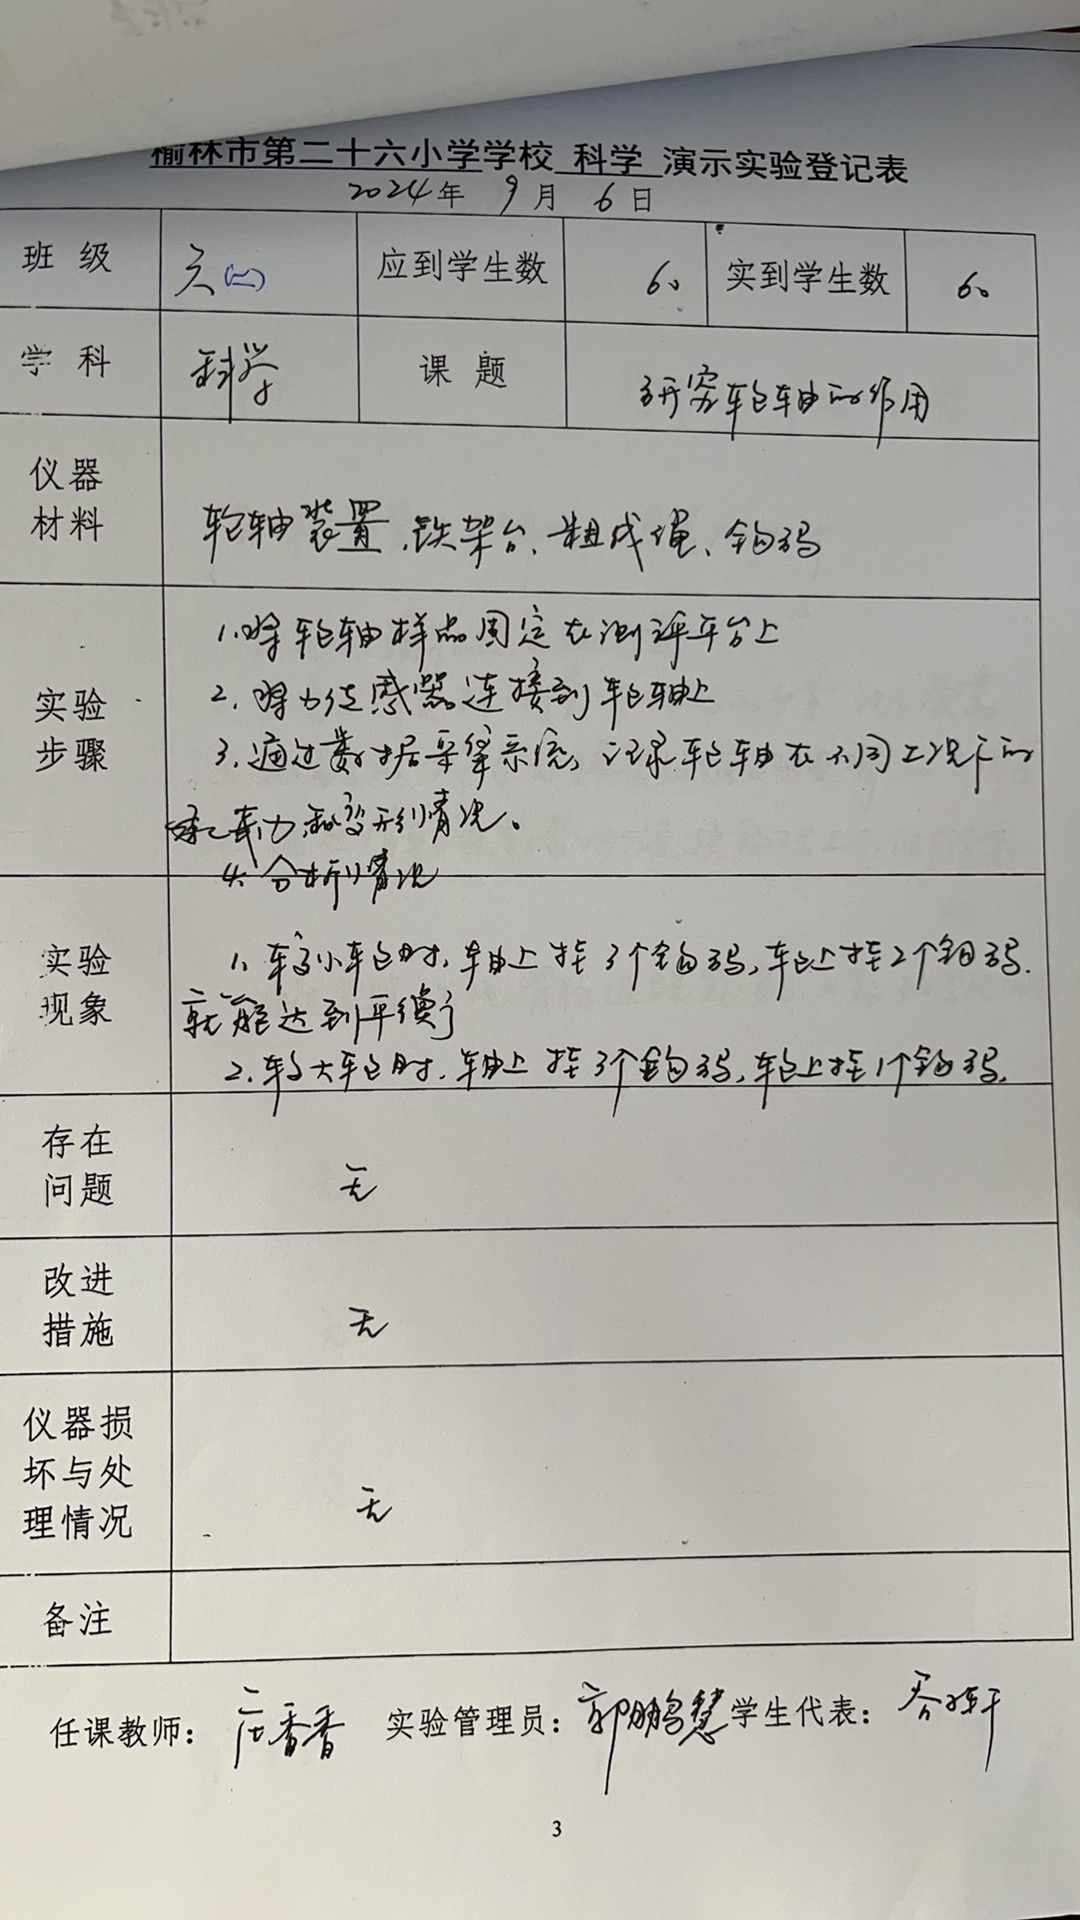 榆林市第二十六小学学校 科学 演示实验登记表
2024年 9月 6日
班级 六(二) 应到学生数 60 实到学生数 60
学科 科学 课题 研究轮轴的作用
仪器
材料
轮轴装置、铁架台、粗成绳、钩码
实验
步骤
1、将轮轴样品固定在测评平台上
2、将力传感器连接到轮轴上
3、通过数据采集系统,记录轮轴在不同工况下的
承载力和变形情况。
4、分析情况
实验
现象
1、较小轮时,轴上挂3个钩码,轮上挂2个钩码.
就能达到平衡了
2、较大轮时,轴上挂3个钩码,轮上挂1个钩码.
存在
问题
无
改进
措施
无
仪器损
坏与处
理情况
无
备注
任课教师: 香香 实验管理员: 郭鹏慧 学生代表: 轩
3